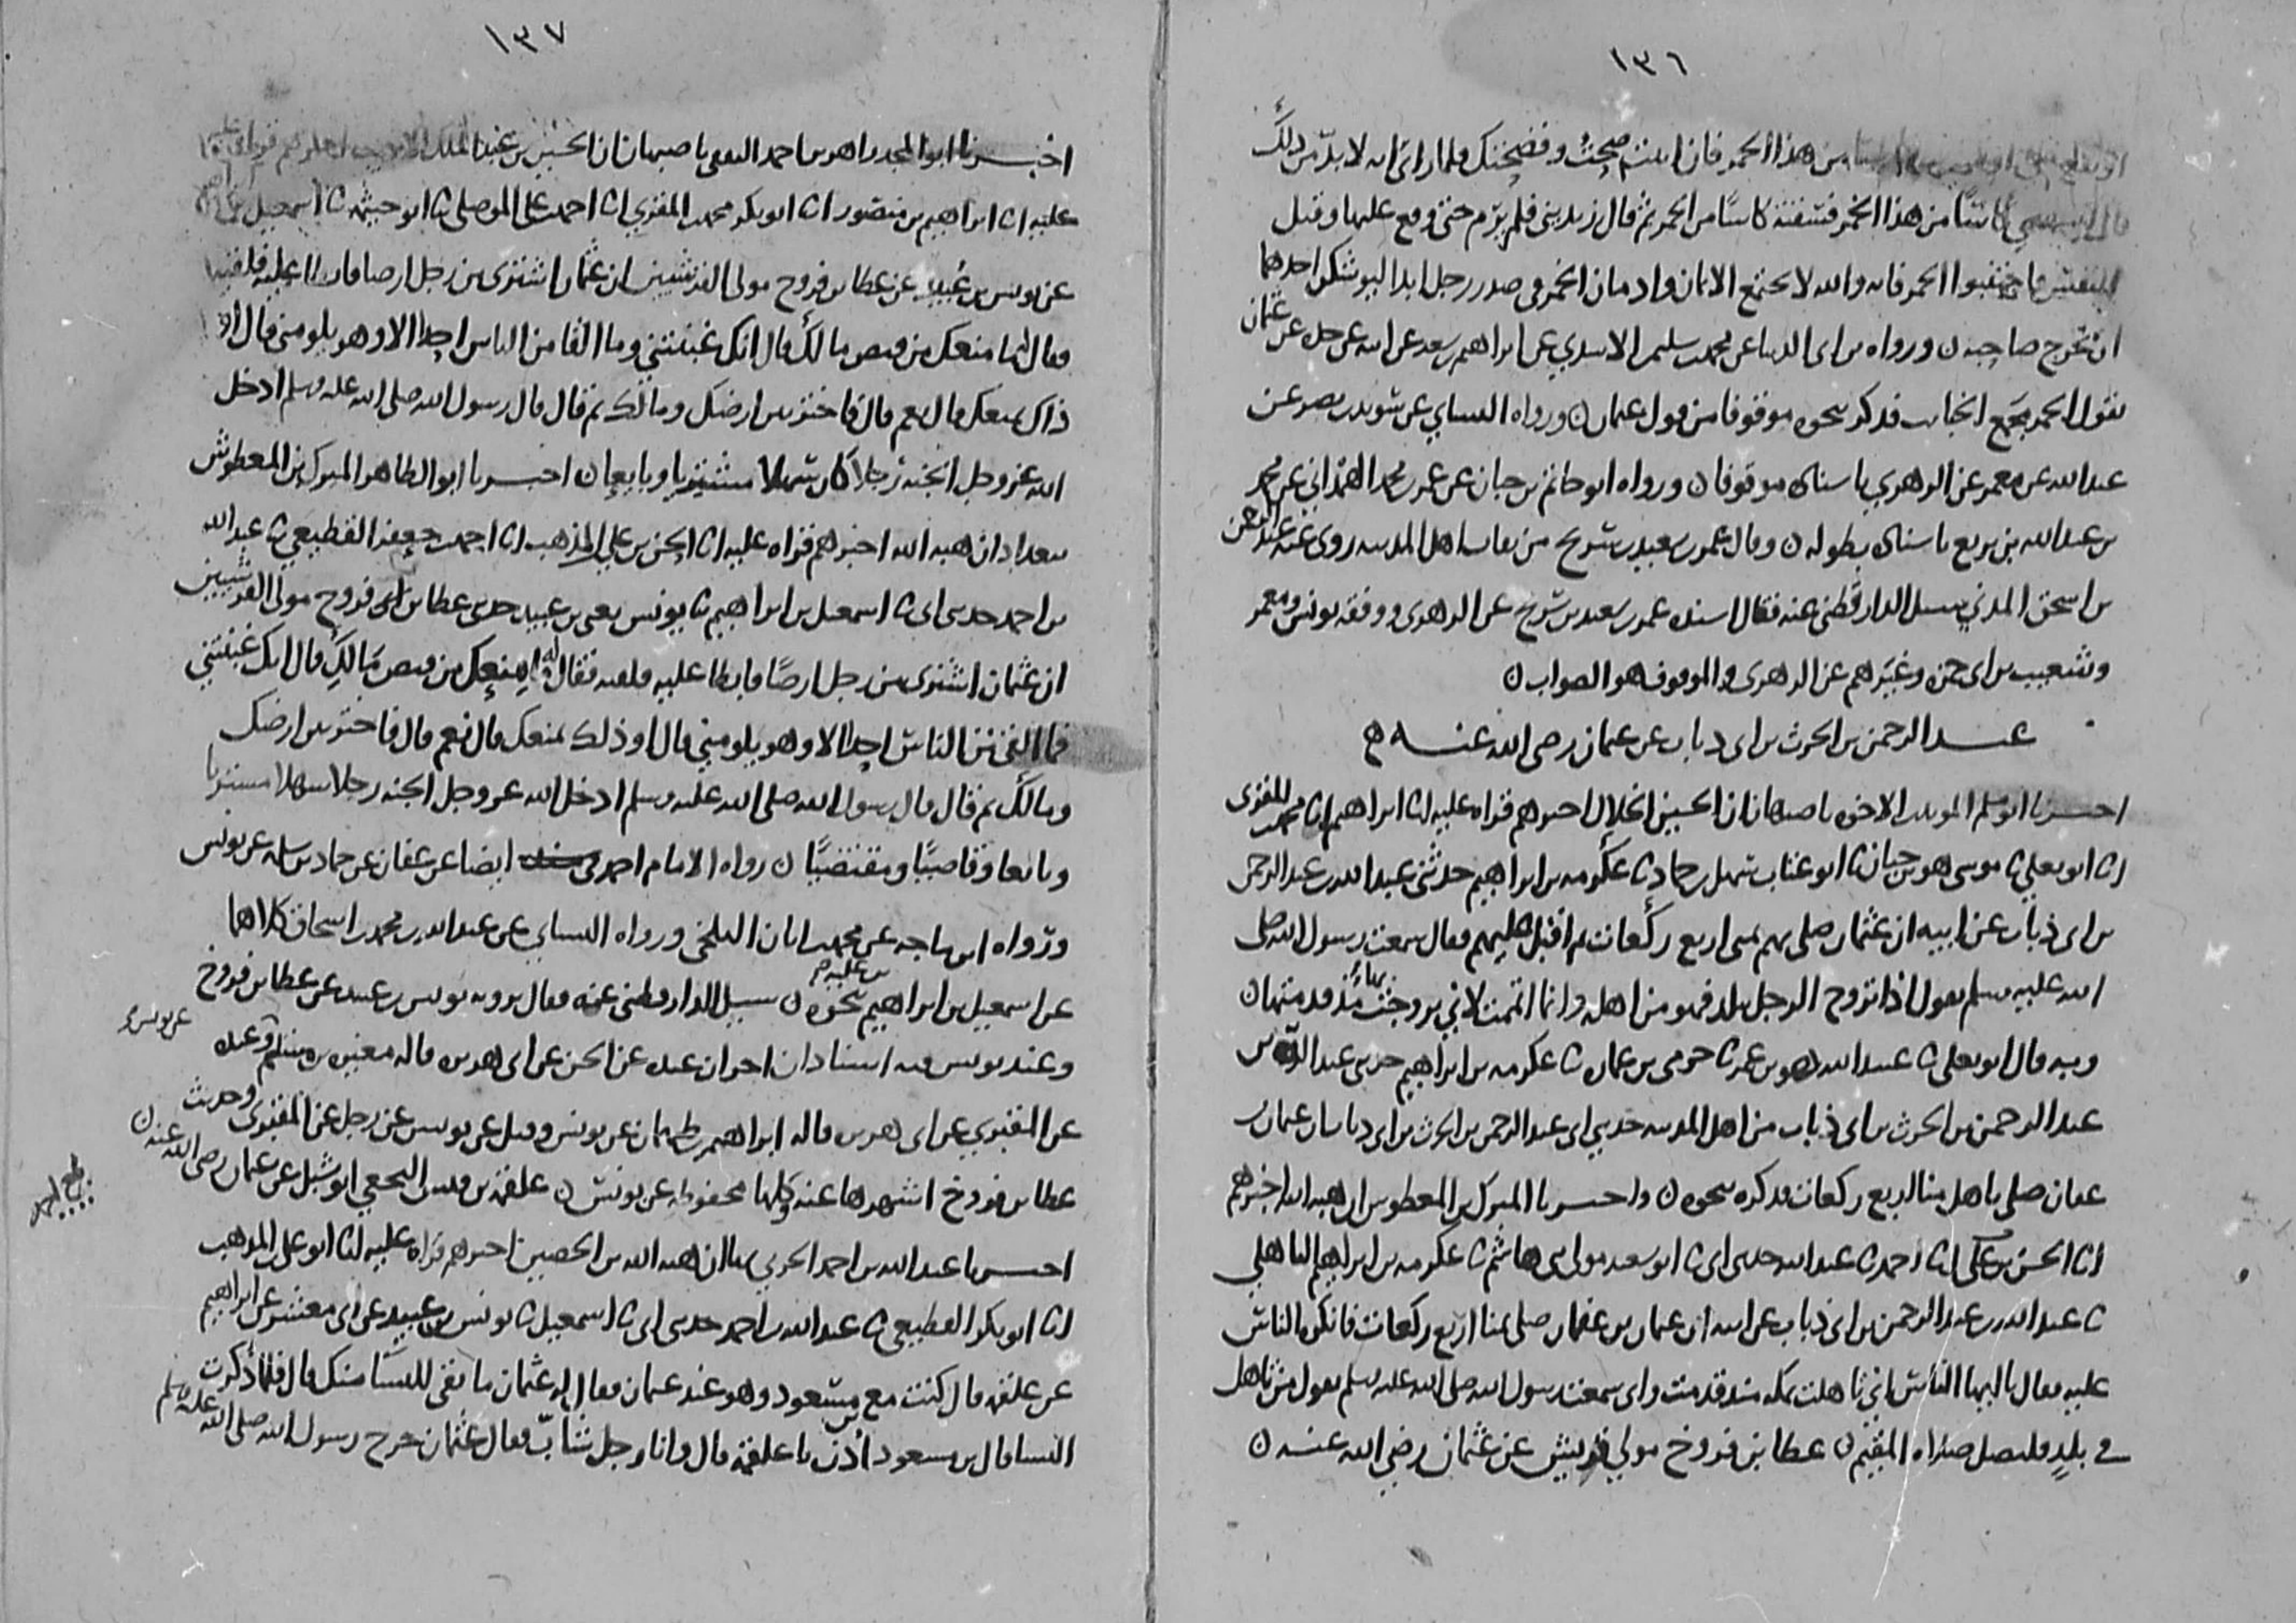 ١٣٦
من هذا الخمر فان ابيت صحت وفضحتك فلما راى انه لا بد من ذلك
كاسا من هذا الخمر فسقته كاسا من الخمر ثم قال زيديني فلم يرم حتى وقع عليها وقتل
النفس فاجتنبوا الخمر فانه والله لا يجتمع الايمان وادمان الخمر في صدر رجل ابدا ليوشكن احدهما
ان يخرج صاحبه ن ورواه بن ابى الدنيا عن محمد بن سليمن الاسدي عن ابراهيم بن سعد عن ابيه عن جده عن عثمان
يقول الخمر مجمع الخبائث فذكر نحوه موقوفا من قول عثمان ن ورواه النسائي عن سويد بن نصر عن
عبد الله عن معمر عن الزهري باسناده موقوفا ن ورواه ابو حاتم بن حبان عن عمر بن محمد الهمداني عن محمد
بن عبد الله بن بزيع باسناده بطوله ن وقال عمر بن سعيد بن سريج من ثقات اهل المدينه روى عنه عبد الرحمن
بن اسحق المدني سيل الدارقطني عنه فقال اسنده عمر بن سعيد بن سريج عن الزهرى ووقفه يونس ومعمر
وشعيب بن ابى حمزه وغيرهم عن الزهرى والموقوف هو الصواب ن
عبد الرحمن بن الحرث بن ابى ذباب عن عثمان رضى الله عنه
اخبرنا ابو مسلم المويد بن الاخوه باصبهان ان الحسين الخلال اخبرهم قراه عليه انا ابراهيم انا محمد بن المقرى
انا ابو يعلى ثنا موسى هو بن حيان ثنا ابو عتاب سهل بن حماد ثنا عكرمه بن ابراهيم حدثني عبد الله بن عبد الرحمن
بن ابى ذباب عن ابيه ان عثمان صلى بهم بمنى اربع ركعات ثم اقبل عليهم فقال سمعت رسول الله صلى
الله عليه وسلم يقول اذا تزوج الرجل ببلد فهو من اهله وانما اتممت لاني تزوجت بها منذ قدمتها ن
وبه قال ابو يعلى ثنا عبيد الله هو بن عمر ثنا حرمى بن عماره ثنا عكرمه بن ابراهيم حدثنى عبد الله بن
عبد الرحمن بن الحرث بن ابى ذباب من اهل المدينه حدثني ابى عبد الرحمن بن الحرث بن ابى ذباب ان عثمان بن
عفان صلى باهل منا اربع ركعات فذكره نحوه ن واخبرنا المبرك بن المعطوش ان هبه الله اخبرهم
انا الحسن بن على انا احمد ثنا عبد الله حدثنى ابى ثنا ابو سعيد مولى بنى هاشم ثنا عكرمه بن ابراهيم الباهلي
ثنا عبد الله بن عبد الرحمن بن ابى ذباب عن ابيه ان عثمان بن عفان صلى بمنا اربع ركعات فانكره الناس
عليه فقال يا ايها الناس اني تاهلت بمكه منذ قدمت وانى سمعت رسول الله صلى الله عليه وسلم يقول من تاهل
في بلد فليصل صلاه المقيم ن عطا بن فروخ مولى قريش عن عثمان رضي الله عنه ن
١٣٧
اخبرنا ابو المجد زاهر بن احمد الثقفى باصبهان ان الحسين بن عبد الملك اخبرهم قراه
عليه انا ابراهيم بن منصور انا ابو بكر محمد بن المقري انا احمد بن على الموصلي ثنا ابو خيثمه ثنا اسمعيل
عن يونس بن عبيد عن عطا بن فروخ مولى القرشيين ان عثمان اشترى من رجل ارضا فابطا عليه فلقيه
فقال له ما منعك من قبض مالك قال انك غبنتني وما القا من الناس احدا الا وهو يلومني قال
ذاك يمنعك قال نعم قال فاختر بين ارضك ومالك ثم قال قال رسول الله صلى الله عليه وسلم ادخل
الله عز وجل الجنه رجلا كان سهلا مشتريا وبايعا ن اخبرنا ابو الطاهر المبرك بن المعطوش
ببغداد ان هبه الله اخبرهم قراه عليه انا الحسن بن علي المذهب انا احمد بن جعفر القطيعي ثنا عبد الله
بن احمد حدثنى ابى ثنا اسمعيل بن ابراهيم ثنا يونس يعنى بن عبيد حدثنى عطا بن فروخ مولى القرشيين
ان عثمان اشترى من رجل ارضا فابطا عليه فلقيه فقال له ما منعك من قبض مالك قال انك غبنتني
فما القى من الناس احدا الا وهو يلومني قال او ذلك يمنعك قال نعم قال فاختر بين ارضك
ومالك ثم قال قال رسول الله صلى الله عليه وسلم ادخل الله عز وجل الجنه رجلا سهلا مشتريا
وبايعا وقاضيا ومقتضيا ن رواه الامام احمد ايضا عن عفان عن حماد بن سلمه عن يونس
ورواه ابن ماجه عن محمد بن ابان البلخي ورواه النسائي عن عبد الله بن محمد بن اسحاق كلاهما
عن اسمعيل بن ابراهيم بن عليه نحوه ن سيل الدارقطني عنه فقال يرويه يونس بن عبيد عن عطا بن فروخ
وعند يونس فيه اسنادان اخران عنده عن الحسن عن ابى هريره قاله مغيره بن مسلم وعنده عن يونس
عن المقبري عن ابى هريره قاله ابراهيم بن طهمان عن يونس وقيل عن يونس عن رجل عن المقبري وحديث
عطا بن فروخ اشهرها عنه وكلها محفوظه عن يونس ن علقمه بن قيس النخعي ابو شبل عن عثمان رضى الله عنه ن
اخبرنا عبد الله بن احمد الحربي ان هبه الله بن الحصين اخبرهم قراه عليه انا ابو على المذهب
انا ابو بكر القطيعي ثنا عبد الله بن احمد حدثنى ابى ثنا اسمعيل ثنا يونس بن عبيد عن ابى معشر عن ابراهيم
عن علقمه قال كنت مع بن مسعود وهو عند عثمان فقال له عثمان ما بقى للنسا منك قال فلما ذكرت
النسا قال بن مسعود ادن يا علقمه قال وانا رجل شاب فقال عثمان خرج رسول الله صلى الله عليه وسلم